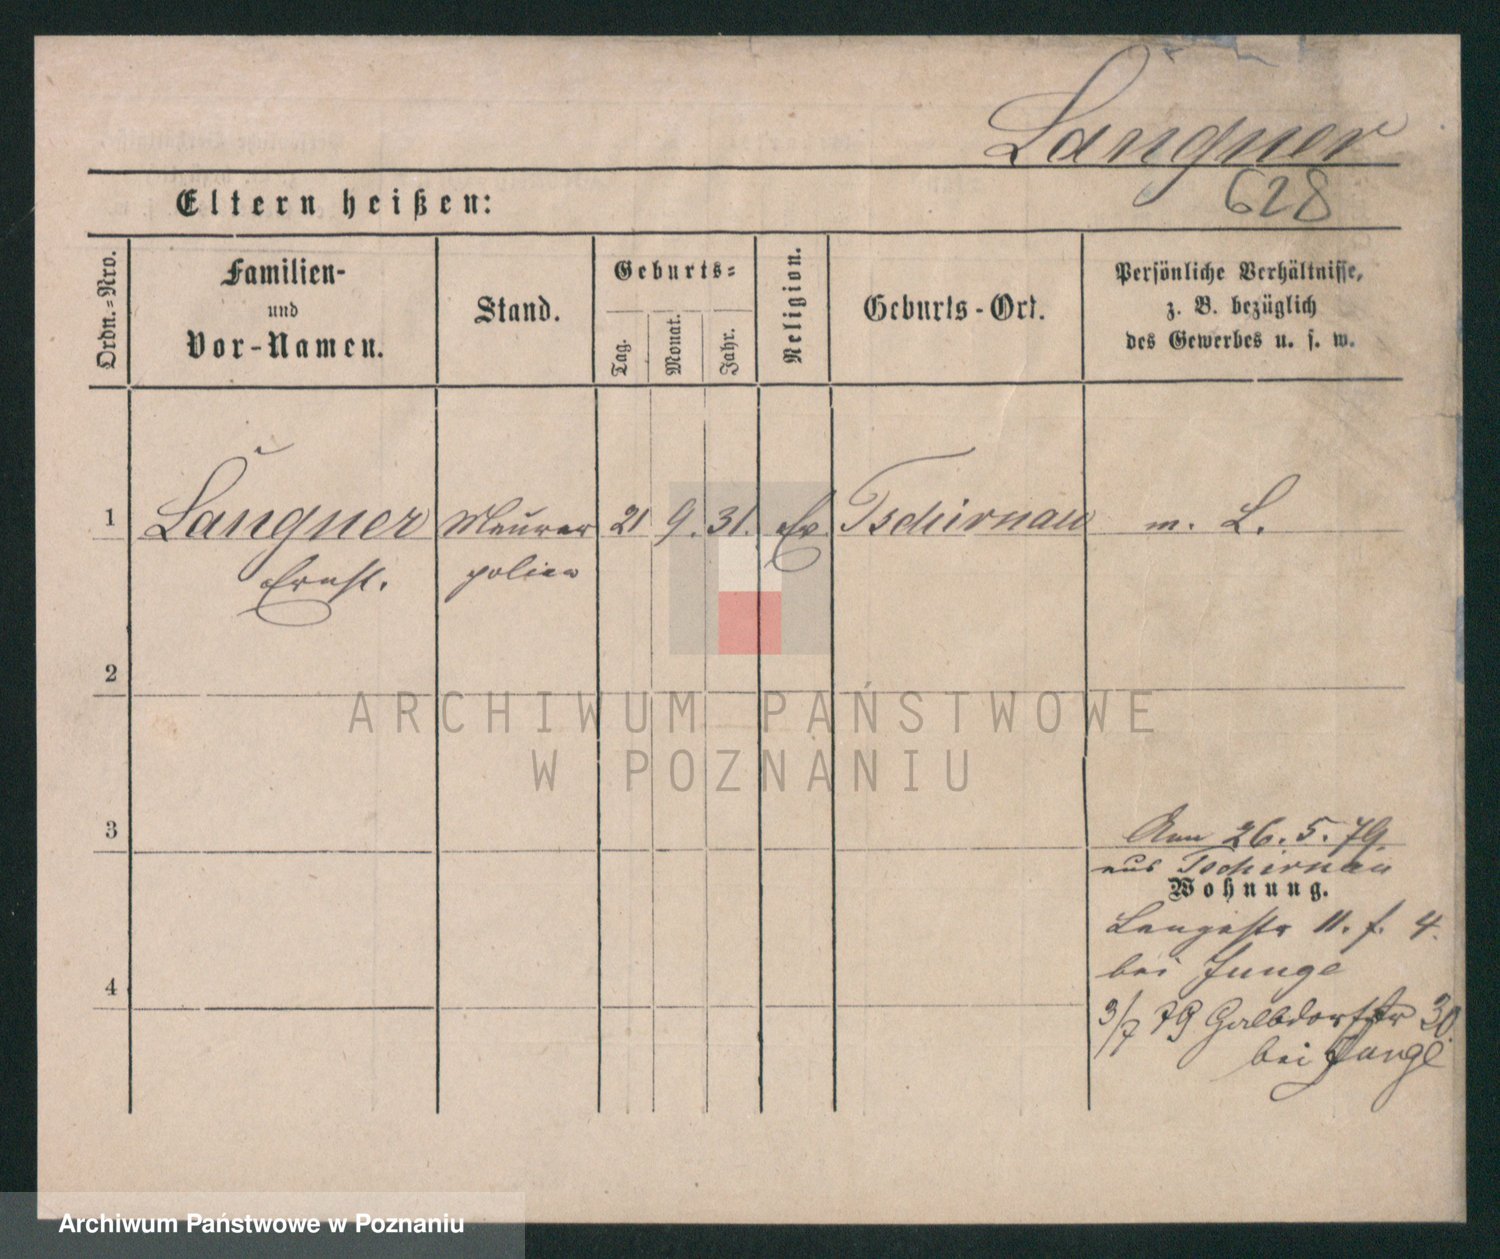 Langner
628
Eltern heißen:
Ordn.-Nro.
Familien-
und
Vor-Namen.
Stand.
Geburts-
Tag.
Monat.
Jahr.
Religion.
Geburts-Ort.
Persönliche Verhältnisse,
z. B. bezüglich
des Gewerbes u. s. w.
1
Langner Maurer 21 9. 31. Ev Tschirnau m. L.
Ernst. polier
2
3
4
Anm 26. 5. 79.
aus Tschirnau
Wohnung.
Langestr 11. f. 4.
bei Junge
3/7 79 Halbdorfstr 30.
bei Junge
ARCHIWUM PAŃSTWOWE
W POZNANIU
Archiwum Państwowe w Poznaniu